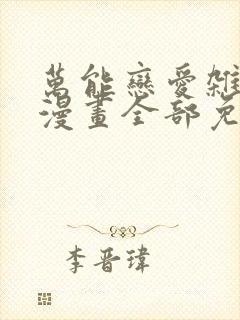 萬能戀愛雜
漫畫全部免
李晋瑋